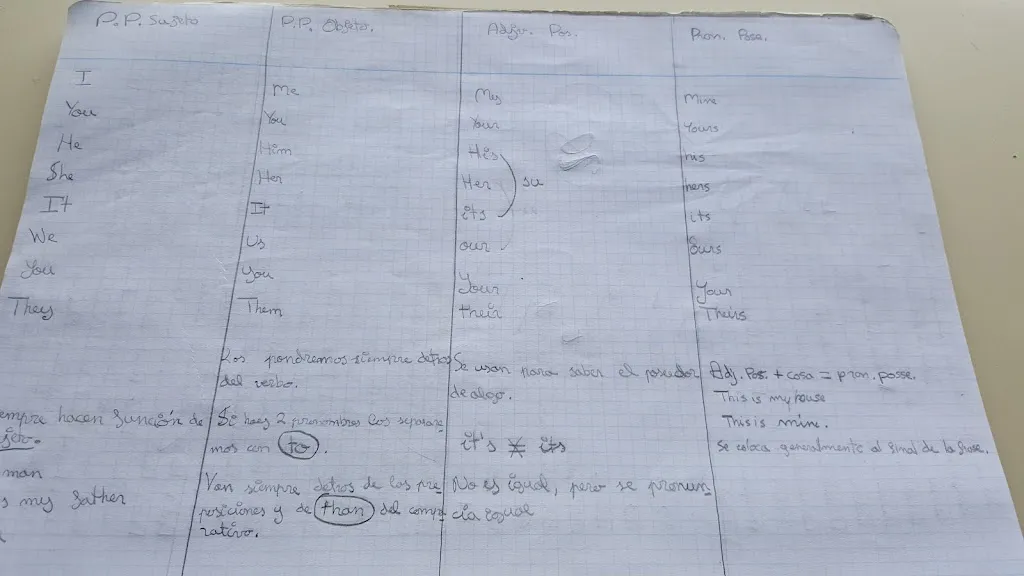 P.P. Sujeto
I
You
He
She
It
We
You
They
empre hacen función de
jeto.
man
s my father
P.P. Objeto.
Me
You
Him
Her
It
Us
You
Them
Los pondremos siempre detras
del verbo.
Si hay 2 pronombres los separare-
mos con to.
Van siempre detros de las pre-
posiciones y de than del comp-
rativo.
Adjv. Pos.
My
Your
His
Her su
its
our
Your
their
Se usan para saber el poseidor
de algo.
it's ≠ its
No es igual, pero se pronun-
cia igual
Pron. Pose.
Mine
Yours
his
hers
its
Ours
Your
Theirs
Adj. Pos. + cosa = pron. posse.
This is my house
This is mine.
Se coloca generalmente al final de la frase.